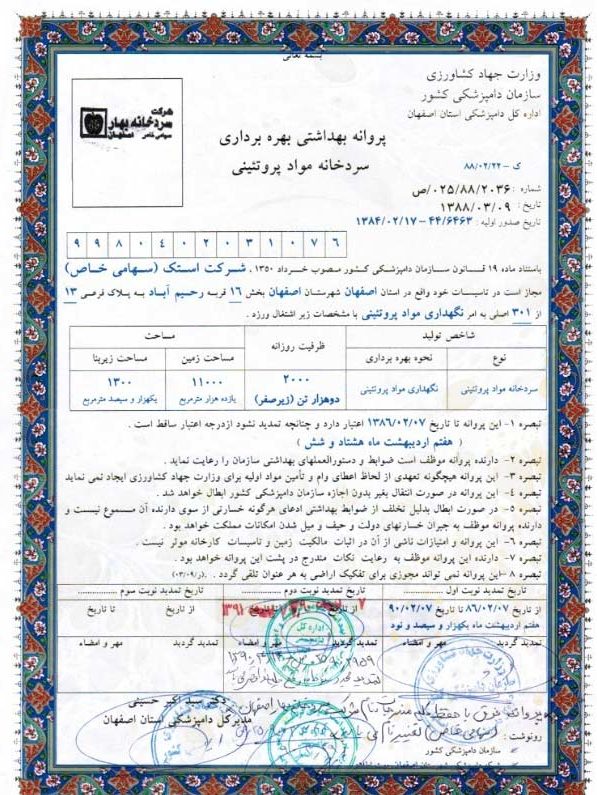 بسمه تعالی
وزارت جهاد کشاورزی
سازمان دامپزشکی کشور
اداره کل دامپزشکی استان اصفهان
شرکت
سردخانه بهار
سهامی خاص اصفهان
پروانه بهداشتی بهره برداری
سردخانه مواد پروتئینی
ک - ۸۸/۰۲/۲۲
شماره : ۰۲۵/۸۸/۲۰۳۶/ص
تاریخ : ۱۳۸۸/۰۳/۰۹
تاریخ صدور اولیه : ۴۴/۶۴۶۳ - ۱۳۸۴/۰۲/۱۷
۹ ۹ ۸ ۰ ۴ ۰ ۲ ۰ ۳ ۱ ۰ ۷ ۶
باستناد ماده ۱۹ قانون سازمان دامپزشکی کشور مصوب خرداد ۱۳۵۰ ، شرکت استک (سهامی خاص)
مجاز است در تاسیسات خود واقع در استان اصفهان شهرستان اصفهان بخش ۱۶ قریه رحیم آباد به پلاک فرعی ۱۳
از ۳۰۱ اصلی به امر نگهداری مواد پروتئینی با مشخصات زیر اشتغال ورزد .
شاخص تولید ظرفیت روزانه مساحت
نوع نحوه بهره برداری مساحت زمین مساحت زیربنا
سردخانه مواد پروتئینی نگهداری مواد پروتئینی ۲۰۰۰ ۱۱۰۰۰ ۱۳۰۰
دوهزار تن (زیرصفر) یازده هزار مترمربع یکهزار و سیصد مترمربع
تبصره ۱- این پروانه تا تاریخ ۱۳۸۶/۰۲/۰۷ اعتبار دارد و چنانچه تمدید نشود ازدرجه اعتبار ساقط است .
( هفتم اردیبهشت ماه هشتاد و شش )
تبصره ۲- دارنده پروانه موظف است ضوابط و دستورالعملهای بهداشتی سازمان را رعایت نماید.
تبصره ۳- این پروانه هیچگونه تعهدی از لحاظ اعطای وام و تأمین مواد اولیه برای وزارت جهاد کشاورزی ایجاد نمی نماید
تبصره ۴- این پروانه در صورت انتقال بغیر بدون اجازه سازمان دامپزشکی کشور ابطال خواهد شد .
تبصره ۵- در صورت ابطال بدلیل تخلف از ضوابط بهداشتی ادعای هرگونه خسارتی از سوی دارنده آن مسموع نیست و
دارنده پروانه موظف به جبران خسارتهای دولت و حیف و میل شدن امکانات مملکت خواهد بود .
تبصره ۶- این پروانه و امتیازات ناشی از آن در اثبات مالکیت زمین و تاسیسات کارخانه موثر نیست .
تبصره ۷- دارنده این پروانه موظف به رعایت نکات مندرج در پشت این پروانه خواهد بود .
تبصره ۸- این پروانه نمی تواند مجوزی برای تفکیک اراضی به هر عنوان تلقی گردد . (ر/۰۳/۰۹)
تاریخ تمدید نوبت اول ........ تاریخ تمدید نوبت دوم ........ تاریخ تمدید نوبت سوم ........
از تاریخ ۸۶/۰۲/۰۷ تا تاریخ ۹۰/۰۲/۰۷ از تاریخ تا تاریخ
هفتم اردیبهشت ماه یکهزار و سیصد و نود
تمدید گردید مهر و امضاء تمدید گردید مهر و امضاء تمدید گردید مهر و امضاء
دکتر سید اکبر حسینی
مدیرکل دامپزشکی استان اصفهان
رونوشت :
سازمان دامپزشکی کشور